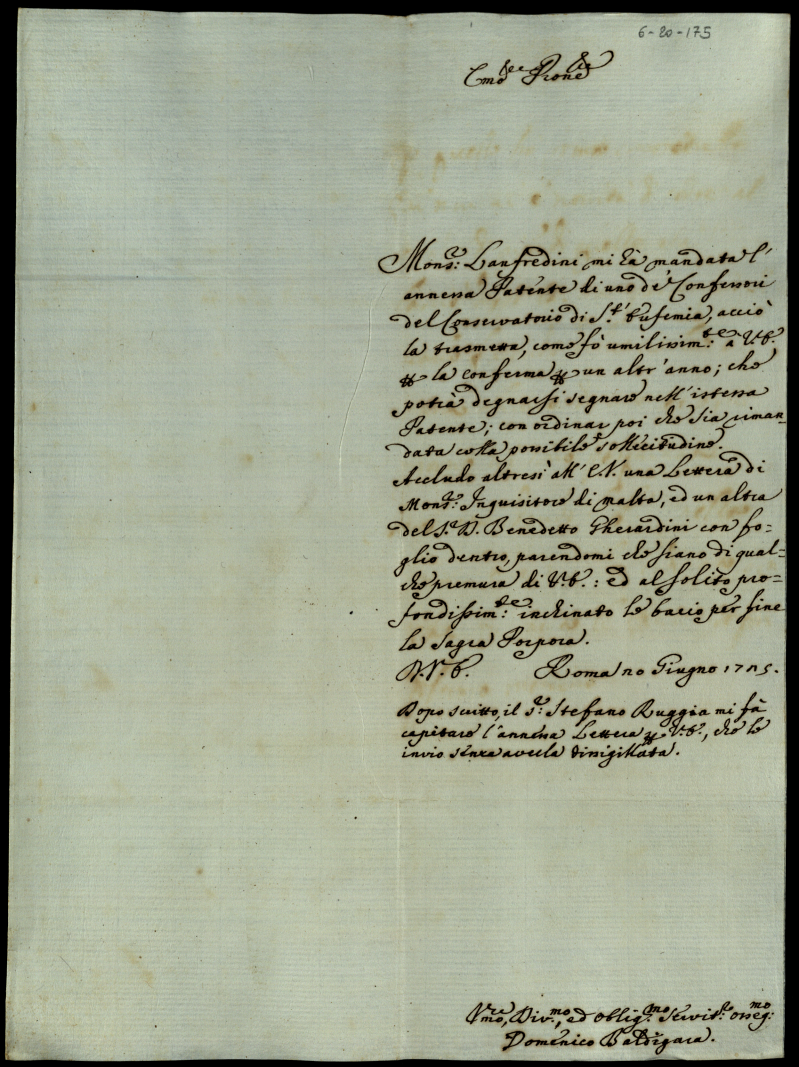 6-20-175
Em.mo e Rev.mo Prone
Mons.r Lanfredini mi hà mandata l'
annessa Patente di uno de' Confessori
del Conservatorio di S.t' Eufemia, acciò
la trasmetta, come fò umilissim.te à V.E.
p la conferma p un altr'anno; che
potrà degnarsi segnare nell'istessa
Patente; con ordinar poi che sia riman-
data colla possibile sollecitudine.
Accludo altresì all'E.V. una Lettera di
Mons.r Inquisitore di Malta, ed un altra
del S.r D. Benedetto Gherardini con fo=
glio dentro, parendomi che siano di qual=
che premura di V.E.: ed al solito pro=
fondissim.te inchinato le bacio per fine
la Sagra Porpora.
D.V.E. Roma 20 Giugno
Dopo scritto, il S.r Stefano Ruggia mi fà
capitare l'annessa Lettera p V.E., che le
invio senza averla dissigillata.
Div.mo, ed oblig.mo Servit.re osseq.mo
Domenico Baldigara.